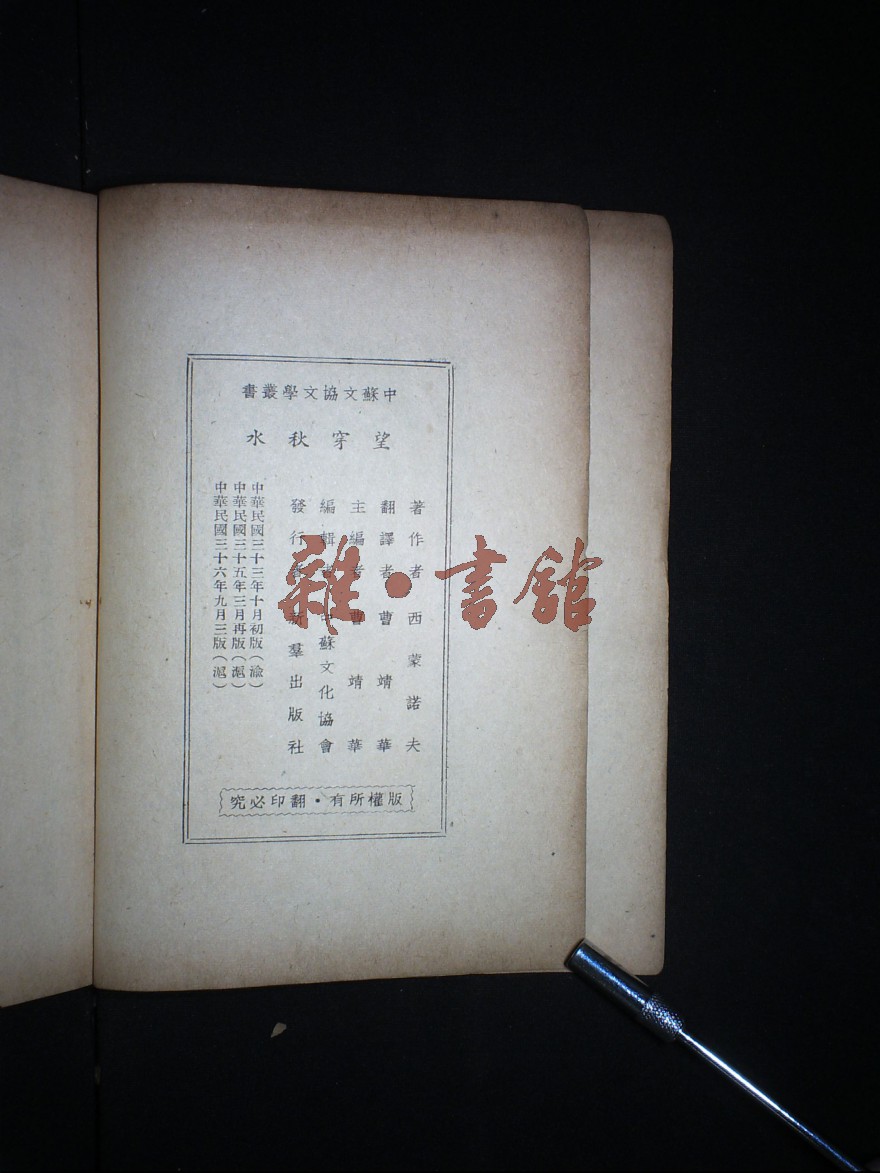 中蘇文協文學叢書
望穿秋水
著作者 西蒙諾夫
翻譯者 曹靖華
主編者 曹靖華
編輯者 中蘇文化協會
發行者 新羣出版社
中華民國三十三年十月初版(渝)
中華民國三十五年三月再版(滬)
中華民國三十六年九月三版(滬)
版權所有·翻印必究
雜·書館